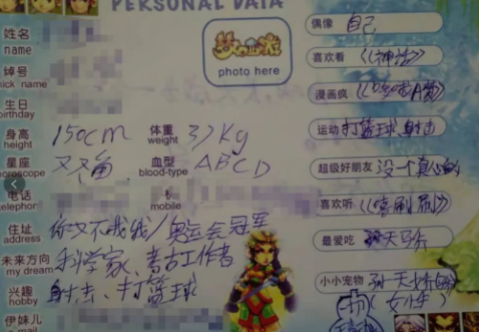 PERSONAL DATA
姓名
name
绰号
nick name
生日
birthday
身高 150cm 体重 37kg
height weight
星座 双鱼 血型 ABCD
horoscope blood-type
电话
telephon mobile
住址 你又不娥我/奥运会冠军
address
未来方向 科学家、考古工作者
my dream
兴趣 射击、打篮球
hobby
伊妹儿
e-mail
梦幻西游
photo here
偶像 自己
喜欢看 《神话》
漫画疯 《哆啦A梦》
运动 打篮球 射击
超级好朋友 没一个真心的
喜欢听 《唰刷刷》
最爱吃
小小宠物 孙